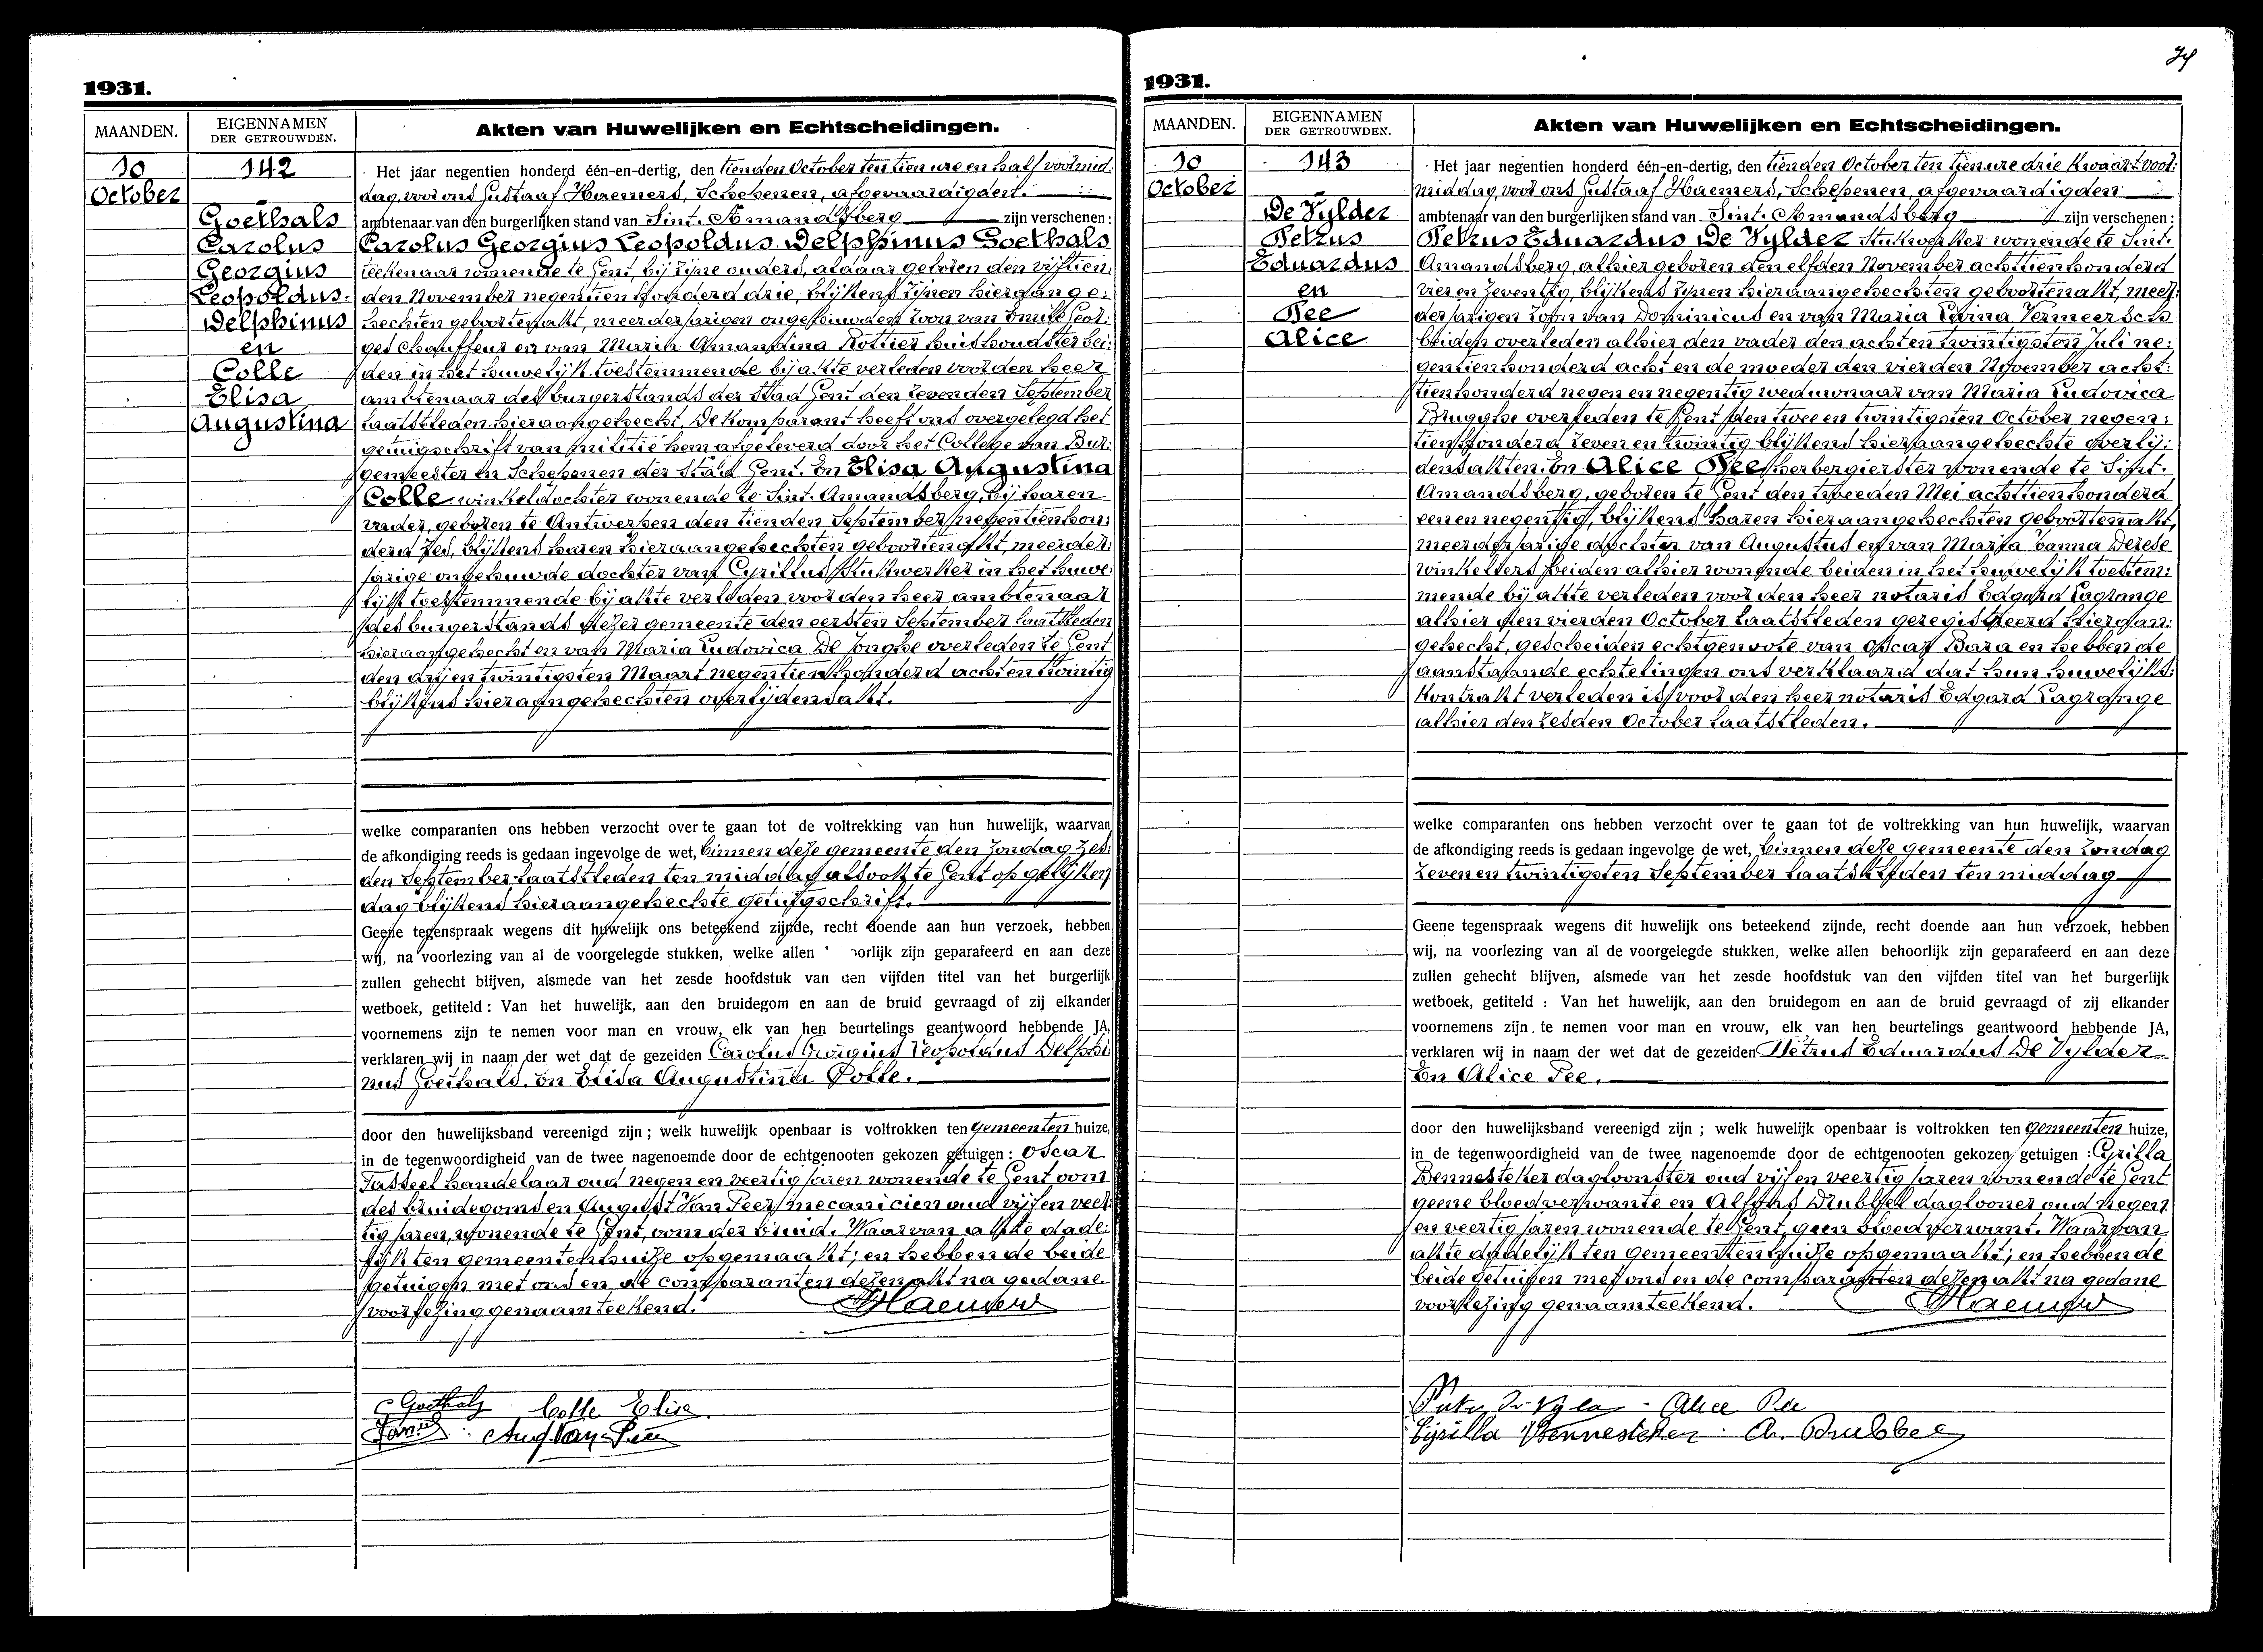 1931.
MAANDEN.
EIGENNAMEN
DER GETROUWDEN.
Akten van Huwelijken en Echtscheidingen.
10
October
142
Goethals
Carolus
Georgius
Leopoldus
Delphinus
en
Colle
Elisa
Augustina
Het jaar negentien honderd één-en-dertig, den tienden October ten tien ure en half voormid:
dag, voor ons Gustaaf Haemers, Schepenen, afgevaardigden
ambtenaar van den burgerlijken stand van Sint-Amandsberg zijn verschenen:
Carolus Georgius Leopoldus Delphinus Goethals
teekenaar wonende te Gent, bij zijne ouders, aldaar geboren den vijftien:
den November negentien honderd drie, blijkens zijnen hieraange:
hechten geboortenakt, meerderjarigen ongehuwden zoon van Emile Geor:
ges chauffeur en van Maria Amandina Rottier huishoudster bei:
den in het huwelijk toestemmende bij akte verleden voor den heer
ambtenaar des burgerstands der stad Gent den zevenden September
laatstleden hieraangehecht. De komparant heeft ons overgelegd het
getuigschrift van militie hem afgeleverd door het College van Bur:
gemeester en Schepenen der stad Gent. En Elisa Augustina
Colle winkeldochter wonende te Sint-Amandsberg, bij haren
vader, geboren te Antwerpen den tienden September negentienhon:
derd zes, blijkens haren hieraangehechten geboortenakt, meerder:
jarige ongehuwde dochter van Cyrillus stukwerker in het huwe:
lijk toestemmende bij akte verleden voor den heer ambtenaar
des burgerstands dezer gemeente den eersten September laatstleden
hieraangehecht en van Maria Ludovica De Jonghe overleden te Gent
den drij en twintigsten Maart negentienhonderd acht en twintig
blijkens hieraangehechten overlijdensakt.
welke comparanten ons hebben verzocht over te gaan tot de voltrekking van hun huwelijk, waarvan
de afkondiging reeds is gedaan ingevolge de wet, binnen deze gemeente den Zondag zes:
den September laatstleden ten middag alsook te Gent op gelijken
dag blijkens hieraangehechte getuigschrift.
Geene tegenspraak wegens dit huwelijk ons beteekend zijnde, recht doende aan hun verzoek, hebben
wij, na voorlezing van al de voorgelegde stukken, welke allen oorlijk zijn geparafeerd en aan deze
zullen gehecht blijven, alsmede van het zesde hoofdstuk van den vijfden titel van het burgerlijk
wetboek, getiteld : Van het huwelijk, aan den bruidegom en aan de bruid gevraagd of zij elkander
voornemens zijn te nemen voor man en vrouw, elk van hen beurtelings geantwoord hebbende JA,
verklaren wij in naam der wet dat de gezeiden Carolus Georgius Leopoldus Delphi
nus Goethals. En Elisa Augustina Colle.
door den huwelijksband vereenigd zijn ; welk huwelijk openbaar is voltrokken ten gemeenten huize,
in de tegenwoordigheid van de twee nagenoemde door de echtgenooten gekozen getuigen : Oscar
Tasseel handelaar oud negen en veertig jaren wonende te Gent oom
des bruidegoms en August Van Peer mecanicien oud vijf en veer:
tig jaren, wonende te Gent, oom der bruid. Waarvan akte dade:
lijk ten gemeentenhuize opgemaakt; en hebben de beide
getuigen met ons en de comparanten dezen akt na gedane
voorlezing genaamteekend. Haemers
C Goethals Colle Elise
Aug. Van Peer
1931.
74
MAANDEN.
EIGENNAMEN
DER GETROUWDEN.
Akten van Huwelijken en Echtscheidingen.
10
October
143
De Vylder
Petrus
Eduardus
en
Pee
Alice
Het jaar negentien honderd één-en-dertig, den tienden October ten tien ure drie kwaart voor:
middag, voor ons Gustaaf Haemers, Schepenen, afgevaardigden
ambtenaar van den burgerlijken stand van Sint-Amandsberg zijn verschenen :
Petrus Eduardus De Vylder stukwerker wonende te Sint-
Amandsberg, alhier geboren den elfden November achttienhonderd
vier en zeventig, blijkens zijnen hieraangehechten geboortenakt, meer:
derjarigen zoon van Dominicus en van Maria Livina Vermeersch
beiden overleden alhier den vader den achten twintigsten Juli ne:
gentienhonderd acht en de moeder den vierden November acht:
tienhonderd negen en negentig weduwnaar van Maria Ludovica
Brugghe overleden te Gent den twee en twintigsten October negen:
tienhonderd zeven en twintig blijkens hieraangehechte overlij:
densakten. En Alice Pee herbergierster wonende te Sint-
Amandsberg, geboren te Gent den tweeden Mei achttienhonderd
een en negentig, blijkens haren hieraangehechten geboortenakt,
meerderjarige dochter van Augustus en van Maria Joanna Derese
winkeliers beiden alhier wonende beiden in het huwelijk toestem:
mende bij akte verleden voor den heer notaris Edgard Lagrange
alhier den vierden October laatstleden geregistreerd hieraan:
gehecht, gescheiden echtgenoote van Oscar Bara en hebben de
aanstaande echtelingen ons verklaard dat hun huwelijks:
kontrakt verleden is voor den heer notaris Edgard Lagrange
alhier den zesden October laatstleden.
welke comparanten ons hebben verzocht over te gaan tot de voltrekking van hun huwelijk, waarvan
de afkondiging reeds is gedaan ingevolge de wet, binnen deze gemeente den Zondag
zeven en twintigsten September laatstleden ten middag
Geene tegenspraak wegens dit huwelijk ons beteekend zijnde, recht doende aan hun verzoek, hebben
wij, na voorlezing van al de voorgelegde stukken, welke allen behoorlijk zijn geparafeerd en aan deze
zullen gehecht blijven, alsmede van het zesde hoofdstuk van den vijfden titel van het burgerlijk
wetboek, getiteld : Van het huwelijk, aan den bruidegom en aan de bruid gevraagd of zij elkander
voornemens zijn te nemen voor man en vrouw, elk van hen beurtelings geantwoord hebbende JA,
verklaren wij in naam der wet dat de gezeiden Petrus Eduardus De Vylder
En Alice Pee.
door den huwelijksband vereenigd zijn ; welk huwelijk openbaar is voltrokken ten gemeenten huize,
in de tegenwoordigheid van de twee nagenoemde door de echtgenooten gekozen getuigen : Cyrilla
Bennesteker dagloonster oud vijf en veertig jaren wonende te Gent
geene bloedverwante en Alfons Drubbel daglooner oud negen
en veertig jaren wonende te Gent, geen bloedverwant. Waarvan
akte dadelijk ten gemeentenhuize opgemaakt; en hebben de
beide getuigen met ons en de comparanten dezen akt na gedane
voorlezing genaamteekend. Haemers
Alice Pee
Cyrilla Bennesteker A. Drubbel